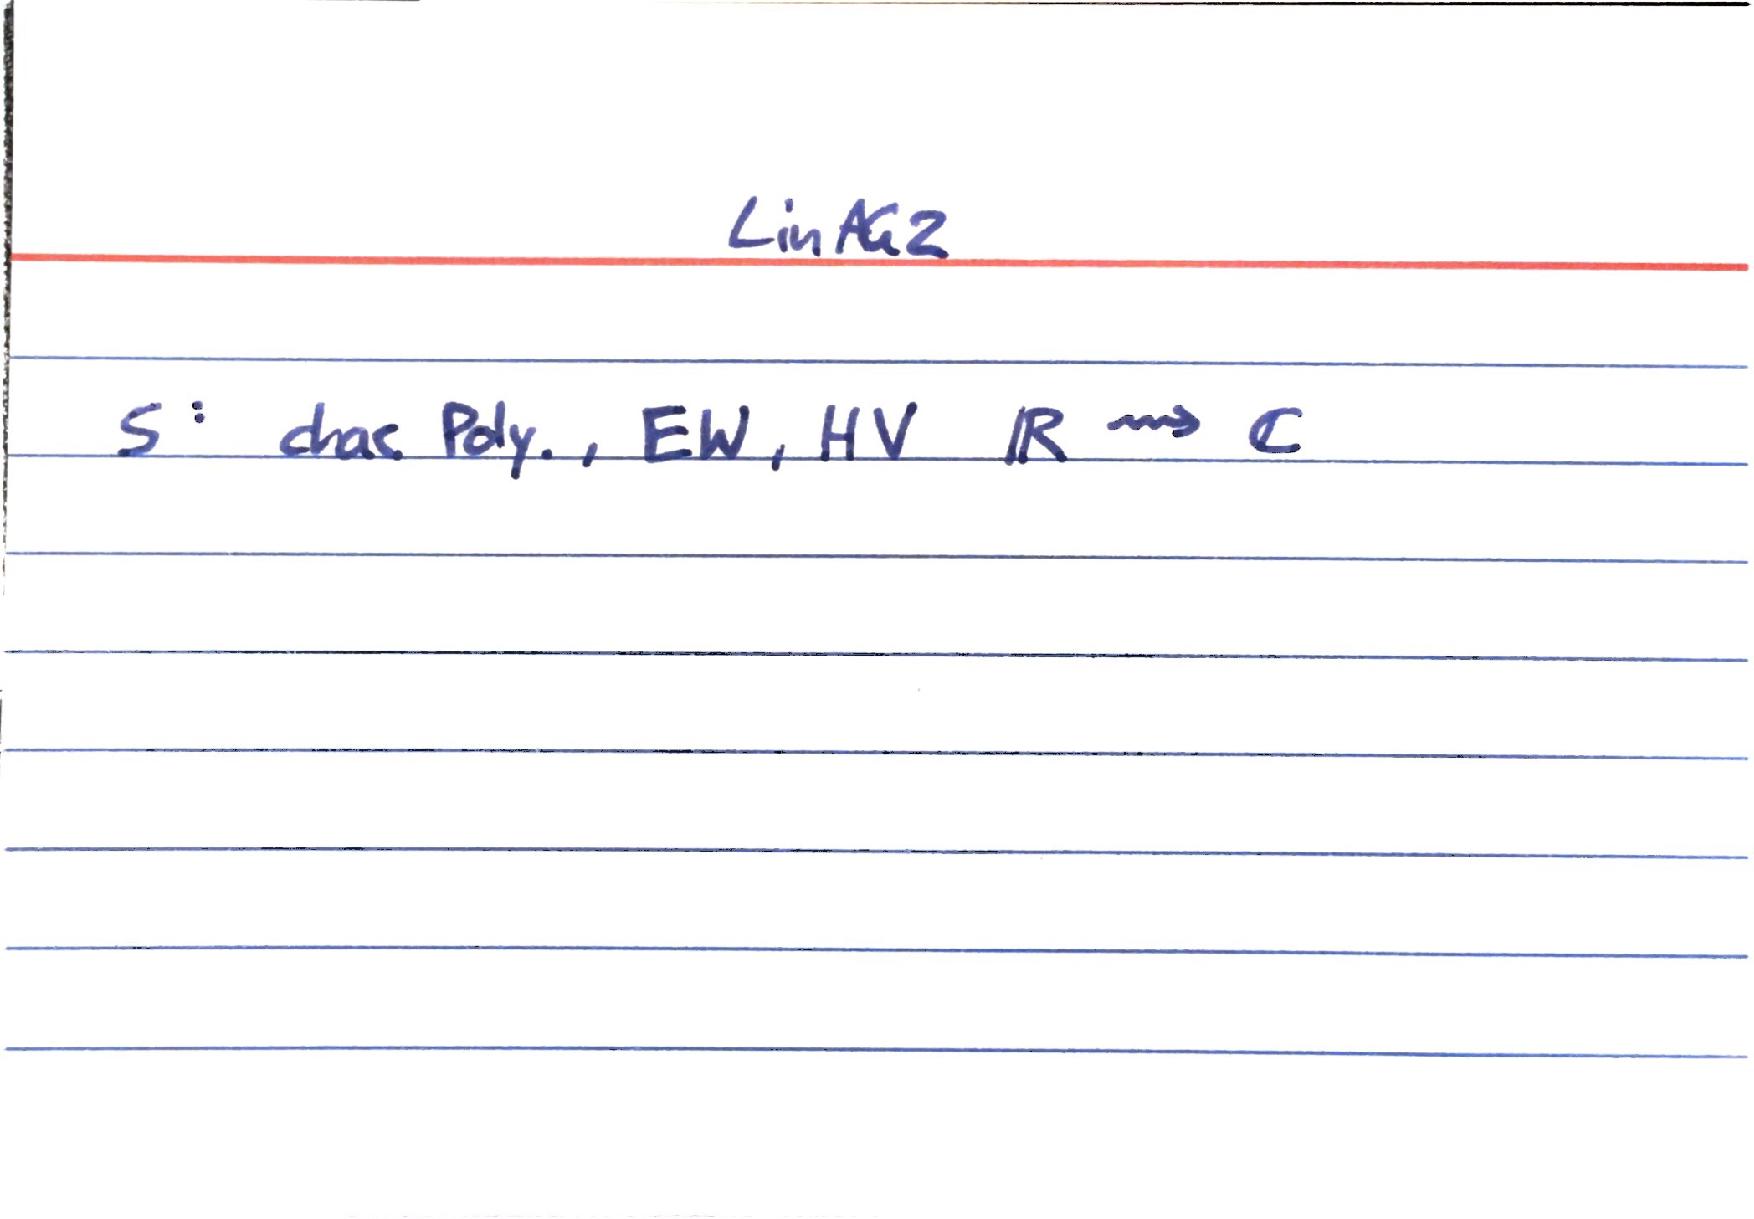 LinAG2
S: chac Poly., EW, HV ℝ ⇝ ℂ